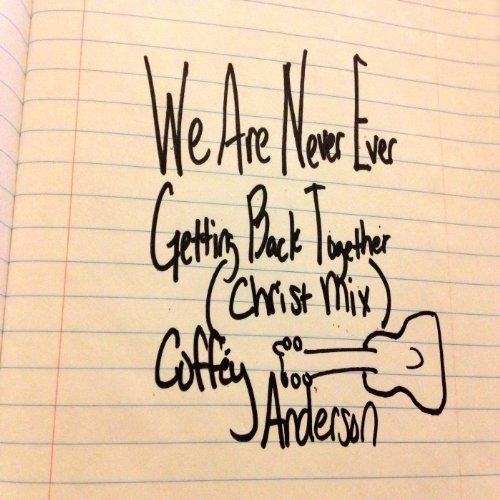 We Are Never Ever
Getting Back Together
(Christ Mix)
Coffey
Anderson